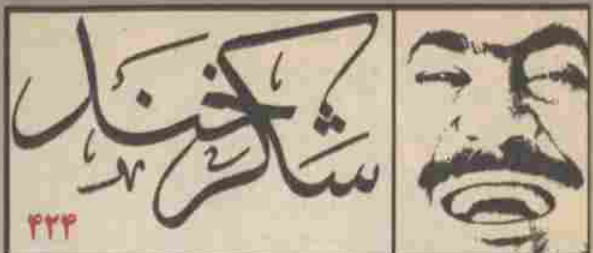 شکرخند
۴۲۴